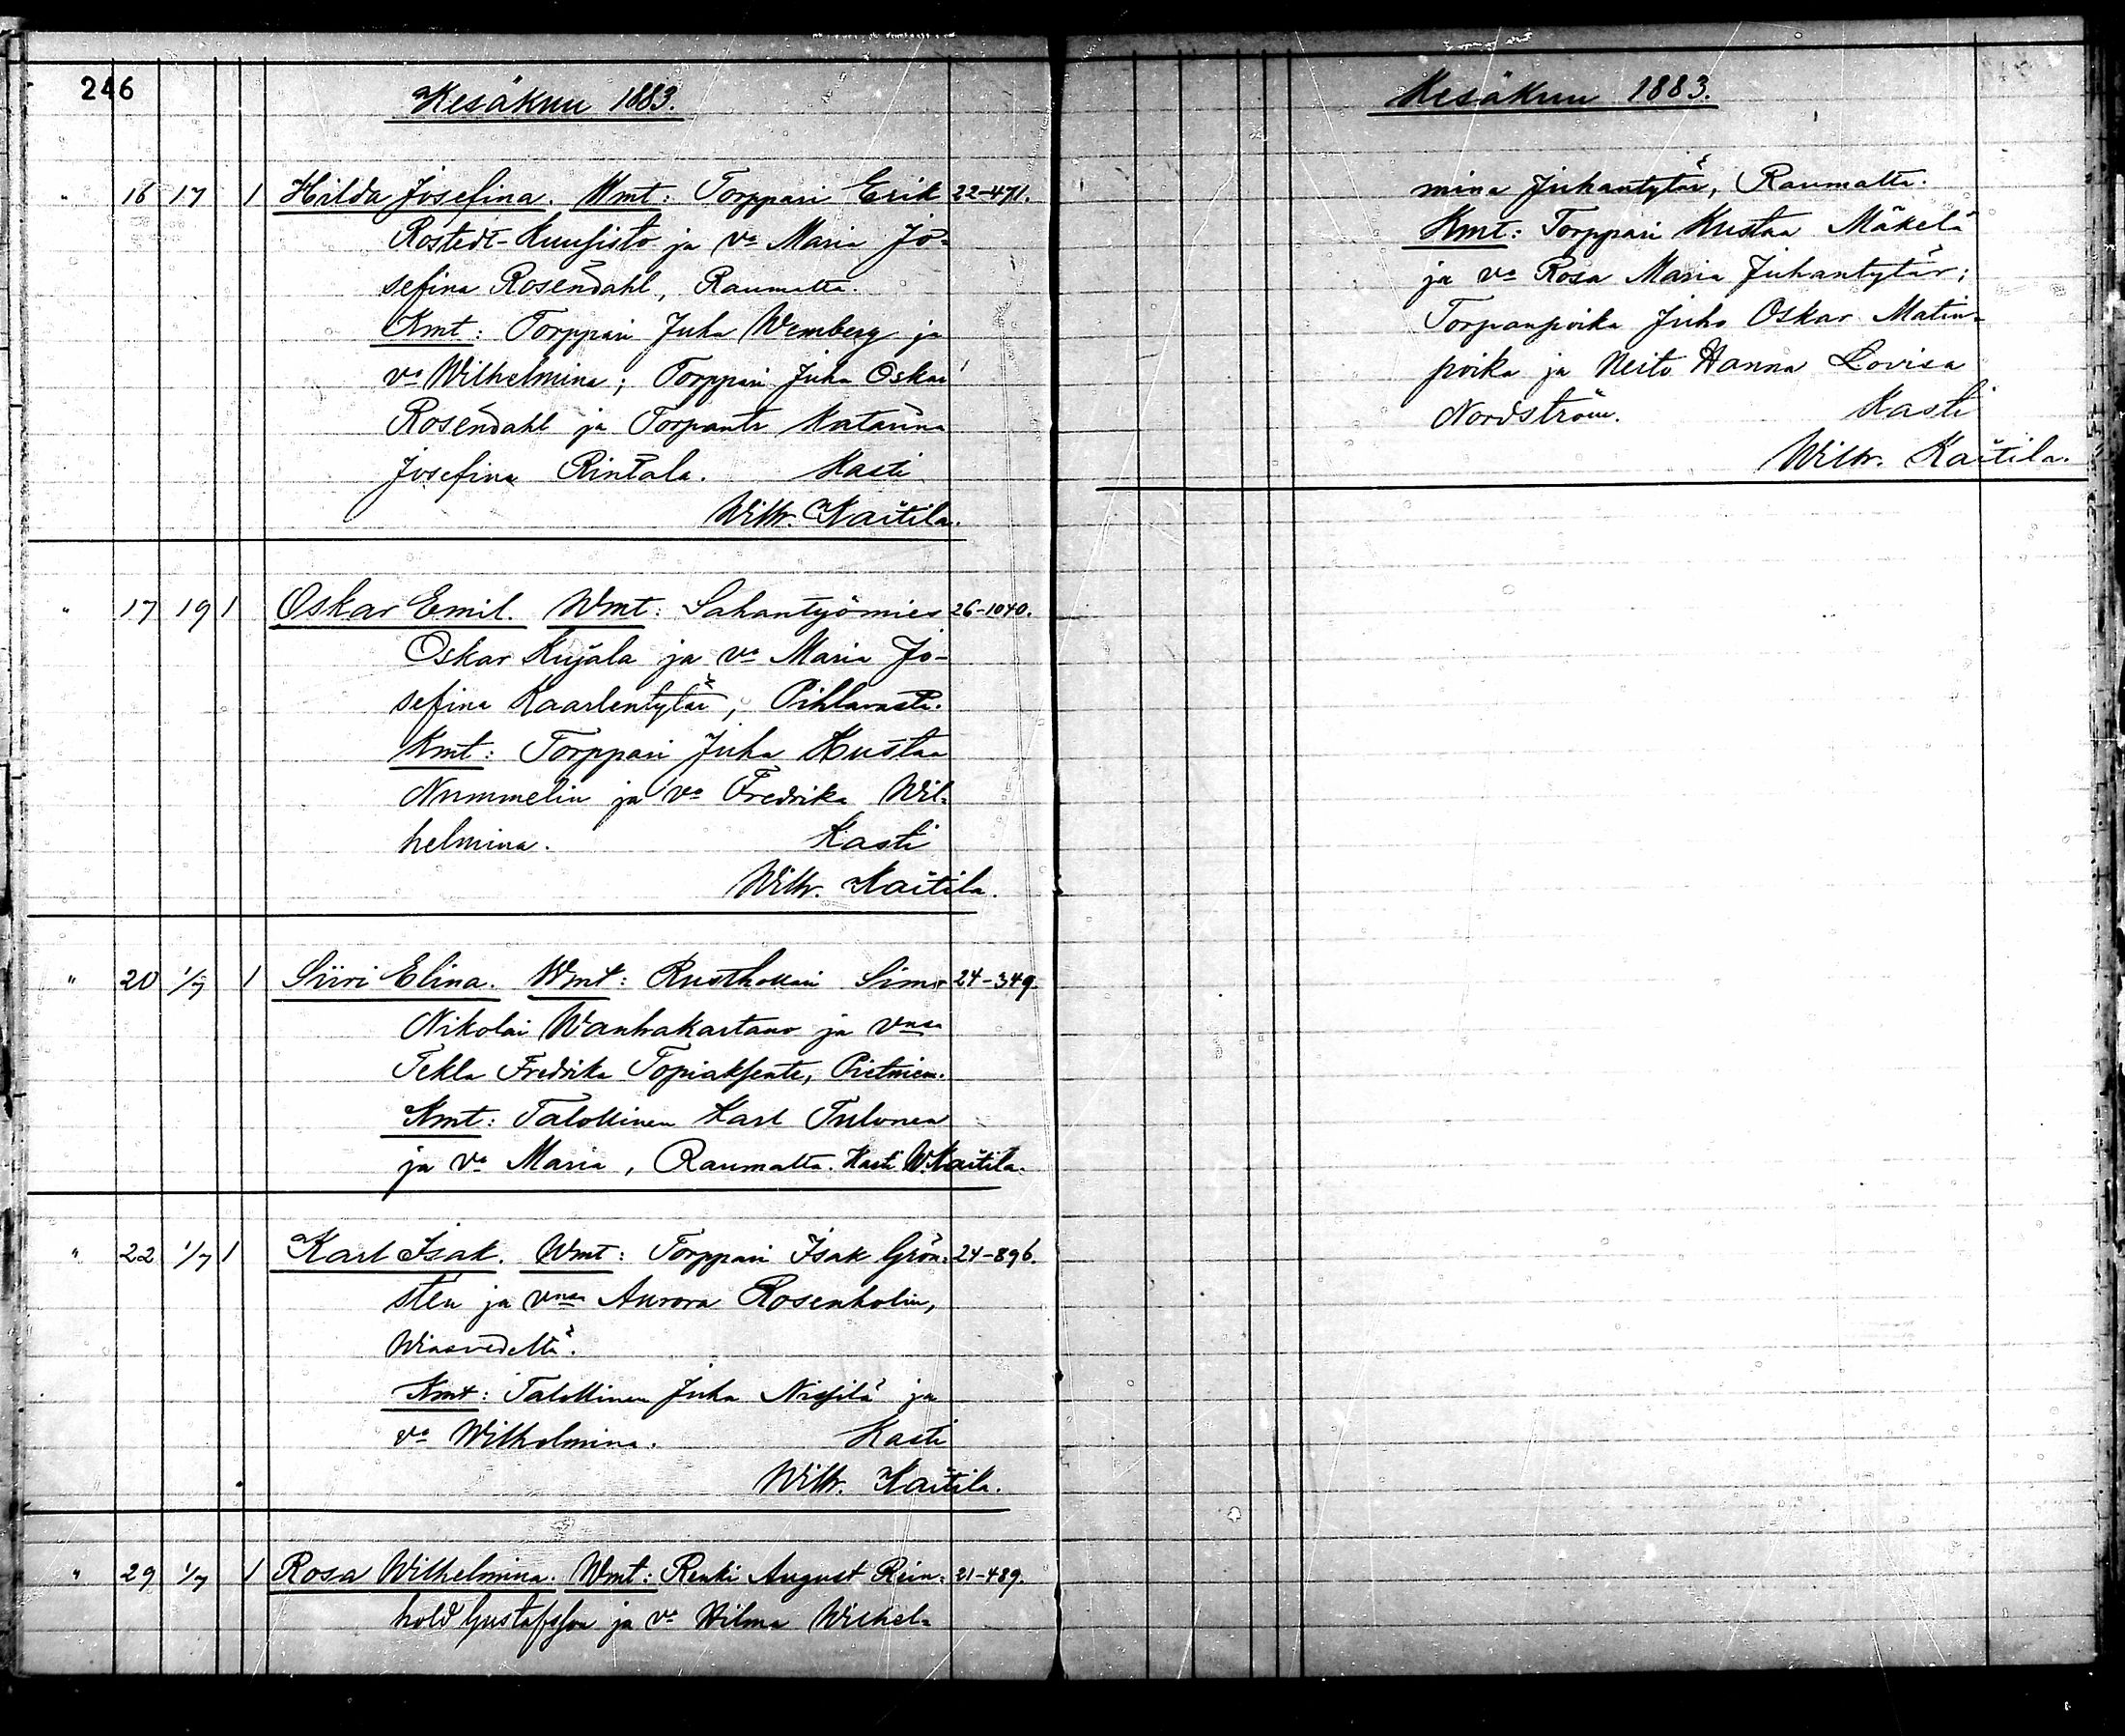 246
Kesäkuu 1883.
" 16 17 1 Hilda Josefina. Wmt: Torppari Erik 22-471.
Rostedt-Kuusisto ja va Maria Jo-
sefina Rosendahl, Raumalta.
Kmt: Torppari Juha Wemberg ja
va Wilhelmina; Torppari Juha Oskar
Rosendahl ja Torpantr Katariina
Josefina Rintala. Kasti
Wilh. Kaitila.
" 17 19 1 Oskar Emil. Wmt: Sahantyömies 26-1040.
Oskar Kujala ja va Maria Jo-
sefina Kaarlentytär, Pihlavasta.
Kmt: Torppari Juha Kustaa
Nummelin ja va Fredrika Wil-
helmina. Kasti
Wilh. Kaitila.
" 20 1/7 1 Siiri Elina. Wmt: Rusthollari Simo 24-349.
Nikolai Wanhakartano ja vnsa
Tekla Fredrika Topiaksentr, Pietniem.
Kmt: Talollinen Karl Tulonen
ja va Maria, Raumalta. Kasti W. Kaitila.
" 22 1/7 1 Karl Isak. Wmt: Torppari Isak Grön- 24-896.
sten ja vnsa Aurora Rosenholm,
Wiasvedeltä.
Kmt: Talollinen Juha Nissilä ja
va Wilhelmina. Kasti
Wilh. Kaitila.
" 29 1/7 1 Rosa Wilhelmina. Wmt: Renki August Rein- 21-489.
hold Gustafsson ja va Hilma Wilhel-
Kesäkuu 1883.
mina Juhantytär, Raumalta.
Kmt: Torppari Kustaa Mäkelä
ja va Rosa Maria Juhantytär;
Torpanpoika Juho Oskar Matin-
poika ja Neito Hanna Lovisa
Nordström. Kasti
Wilh. Kaitila.